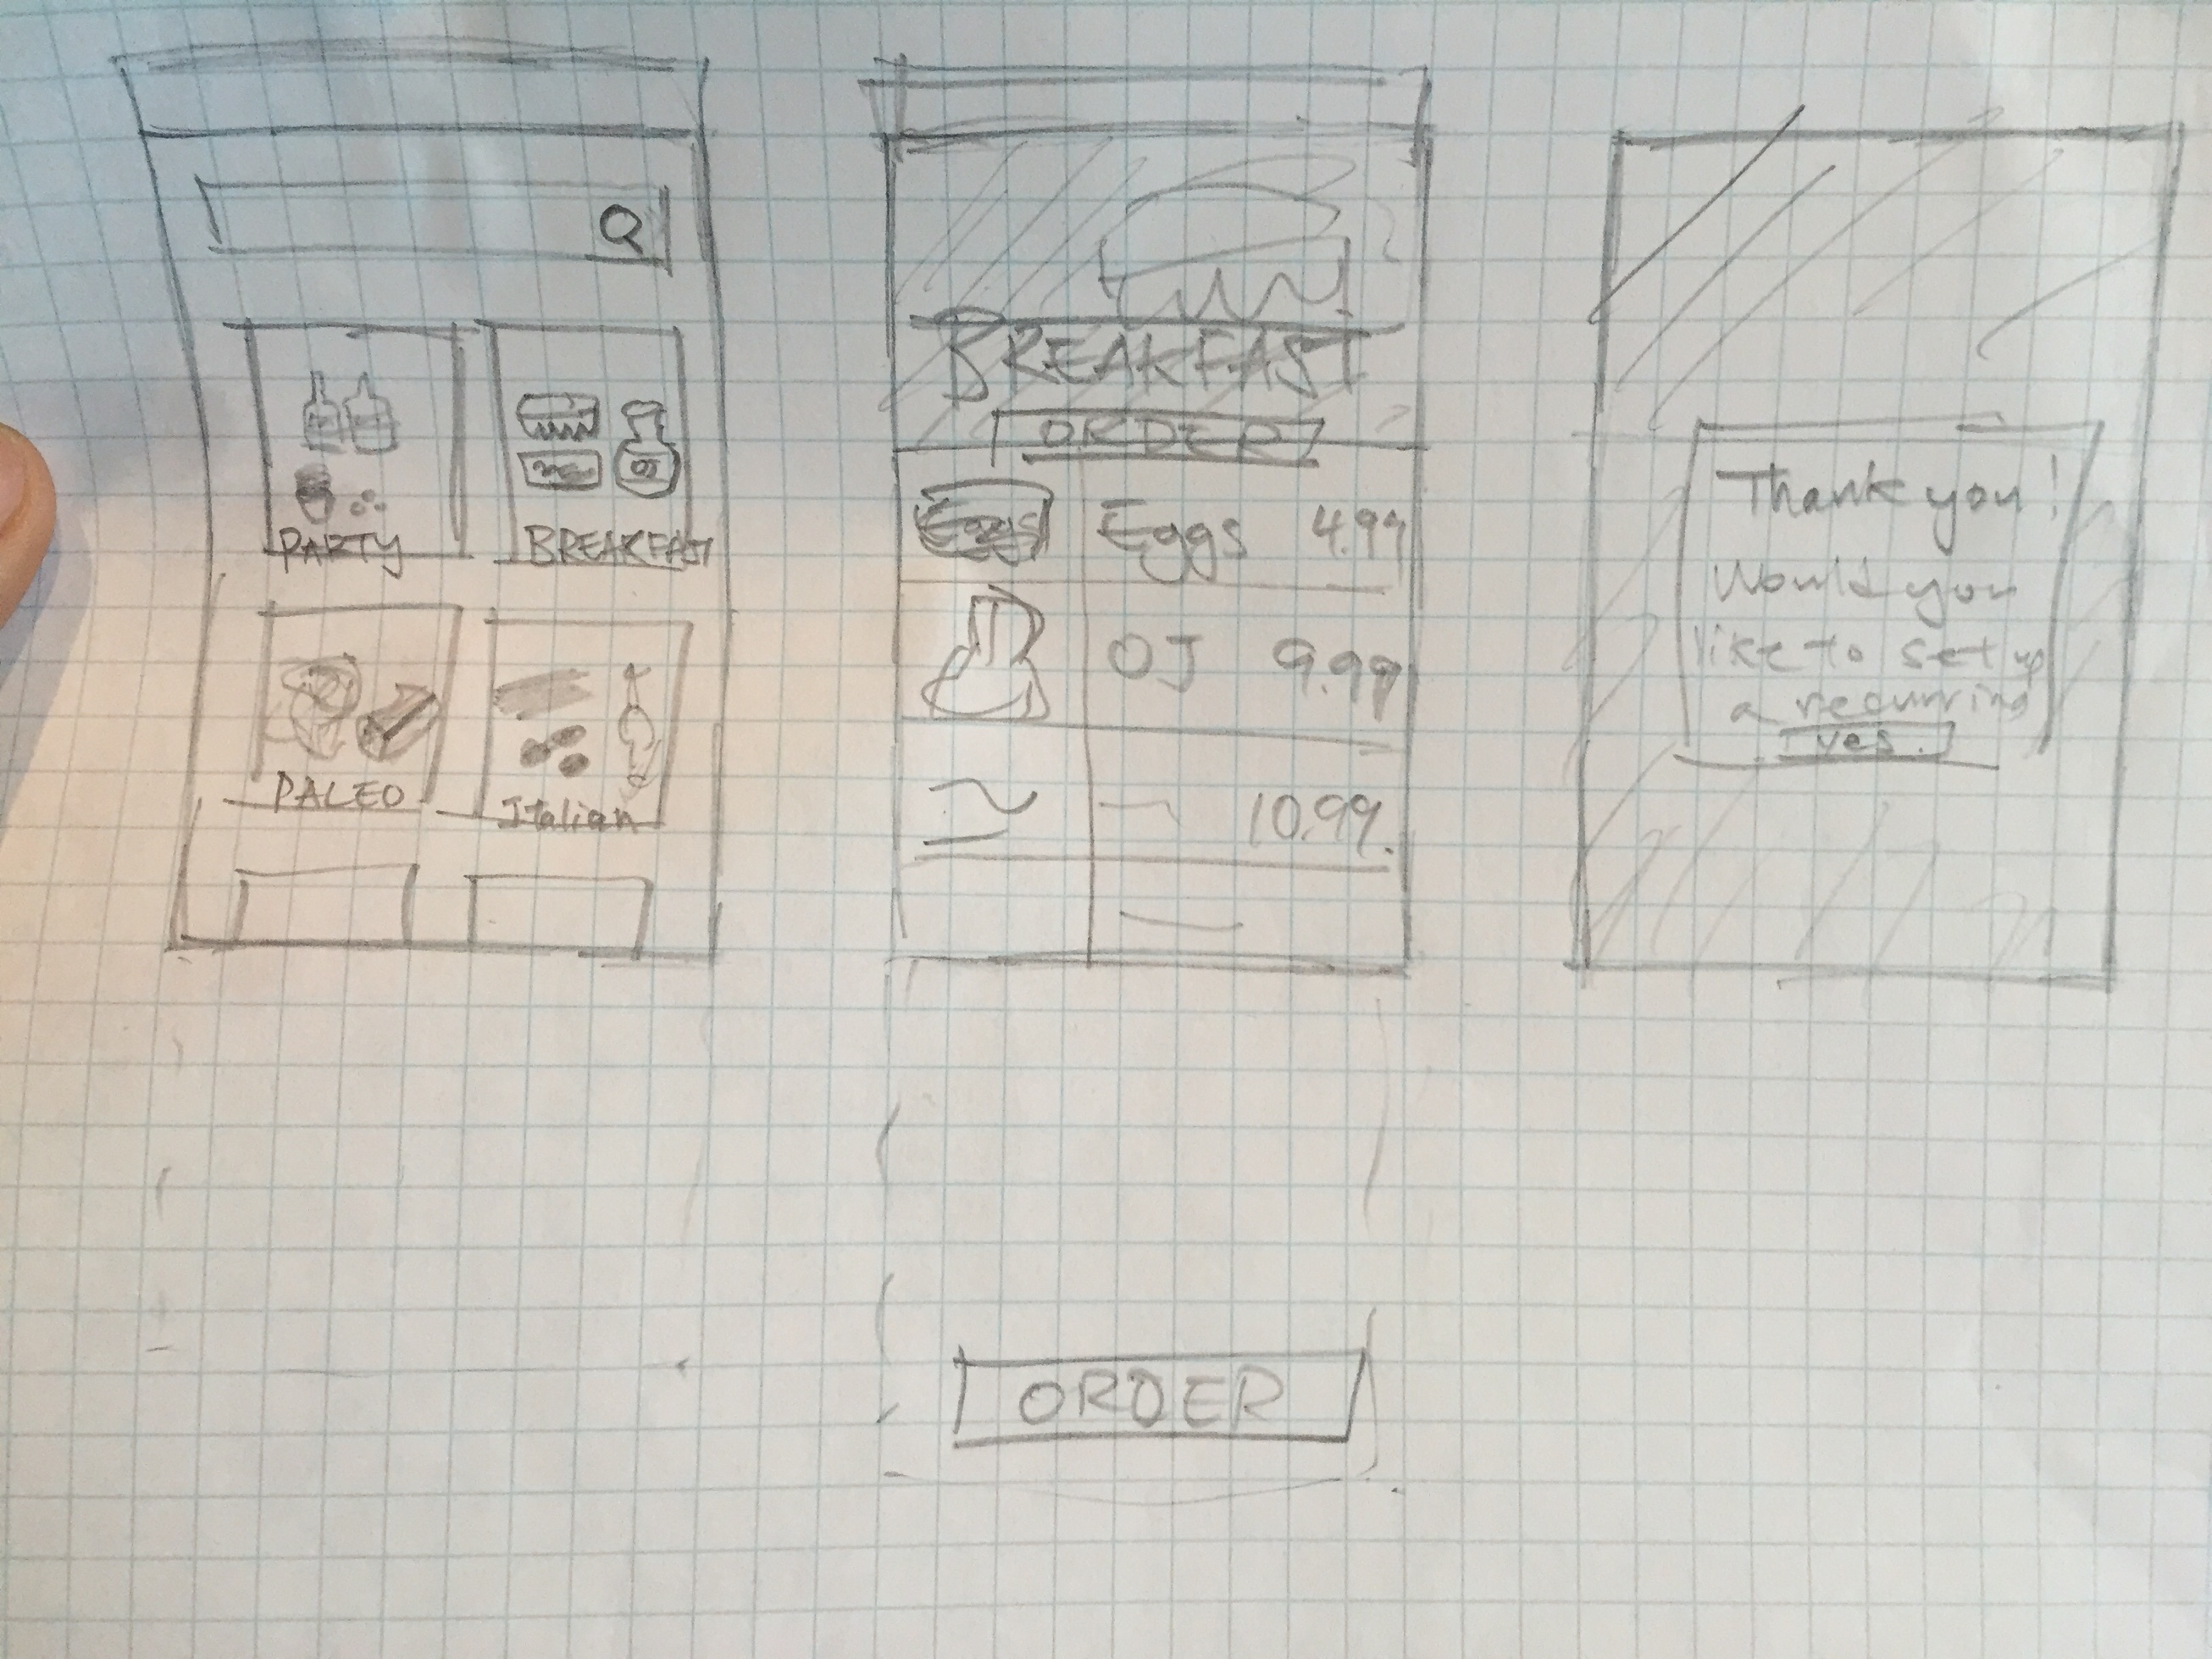 PARTY
BREAKFAST
OJ
PALEO
Italian
BREAKFAST
ORDER
Eggs Eggs 4.99
OJ 9.99
10.99.
ORDER
Thank you!
Would you
like to set up
a recurring
yes.